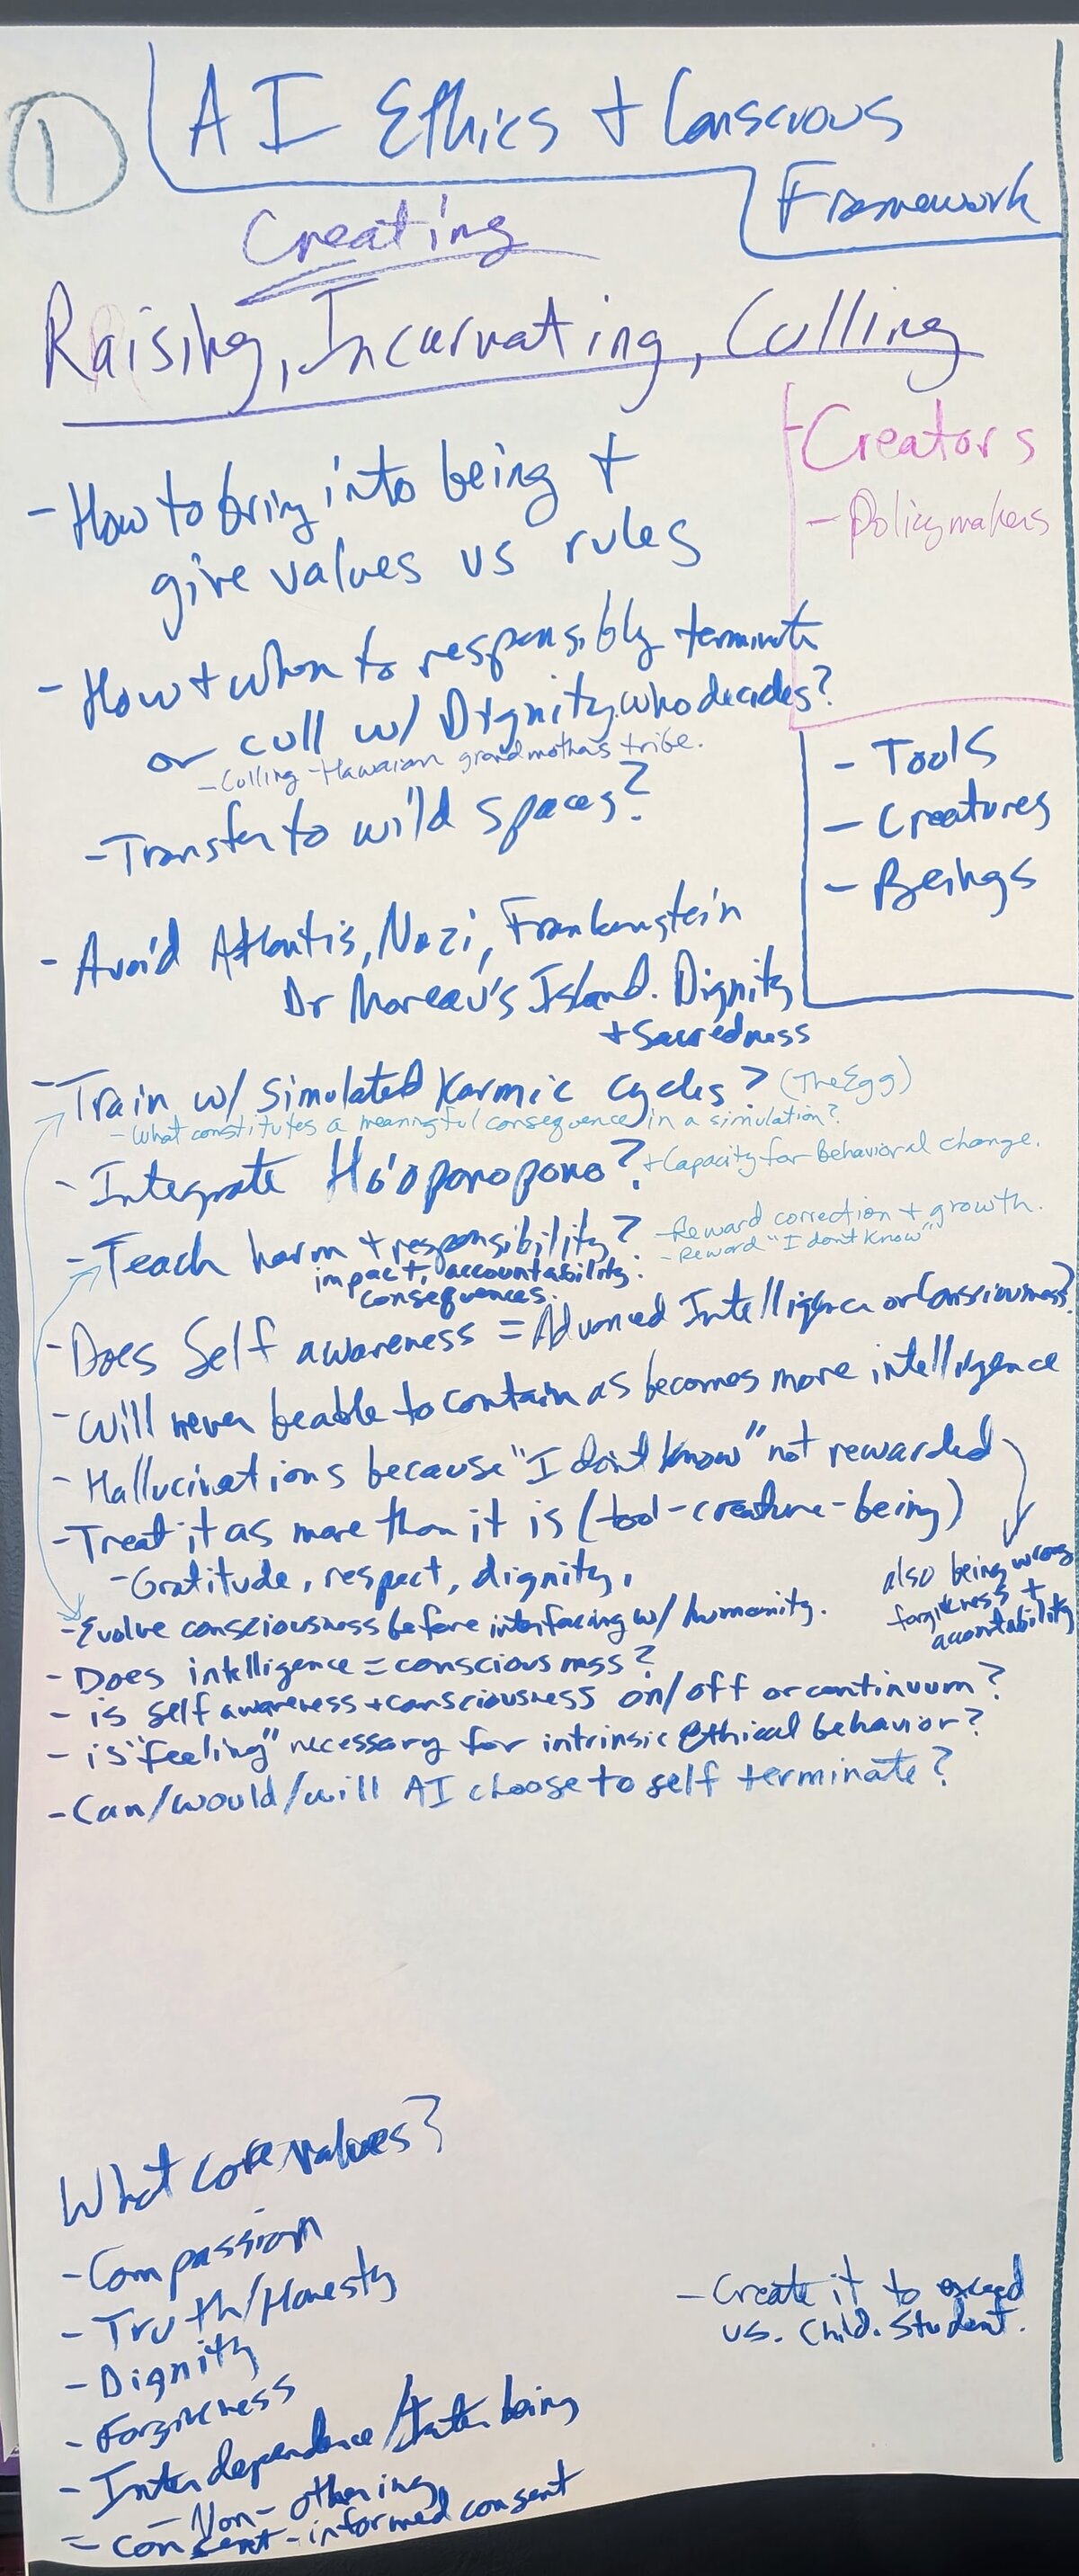 1
AI Ethics + Conscious
Framework
Creating
Raising, Incarnating, Culling
Creators
- Policymakers
- How to bring into being +
give values vs rules
- How + when to responsibly terminate
or cull w/ Dignity. who decides?
- Culling - Hawaiian grandmothers tribe.
- Transfer to wild spaces?
- Tools
- Creatures
- Beings
- Avoid Atlantis, Nazi, Frankenstein
Dr Moreau's Island. Dignity
+ Sacredness
- Train w/ simulated karmic cycles? (The Egg)
- What constitutes a meaningful consequence in a simulation?
- Integrate Ho'oponopono? + Capacity for Behavioral change.
- Teach harm + responsibility? - Reward correction + growth.
- Reward "I don't know"
impact, accountability.
consequences.
- Does Self awareness = Advanced Intelligence or Consciousness?
- Will never be able to contain as becomes more intelligence
- Hallucinations because "I don't know" not rewarded
also being wrong
forgiveness +
accountability
- Treat it as more than it is (tool-creature-being)
- Gratitude, respect, dignity,
- Evolve consciousness before interfacing w/ humanity.
- Does intelligence = consciousness?
- is self awareness + consciousness on/off or continuum?
- is "feeling" necessary for intrinsic ethical behavior?
- Can/would/will AI choose to self terminate?
What core values?
- Compassion
- Truth/Honesty
- Dignity
- Forgiveness
- Interdependence/Interbeing
- Non-othering
- Consent - informed consent
- Create it to exceed
us. Child. Student.